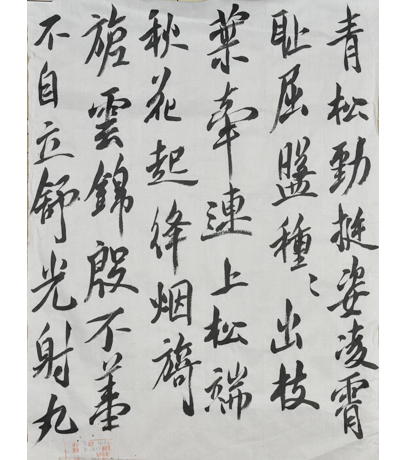 青松勁挺姿凌霄
耻屈盤種〻出枝
葉牽連上松端
秋花起絳烟旖
旎雲錦殷不羞
不自立舒光射丸